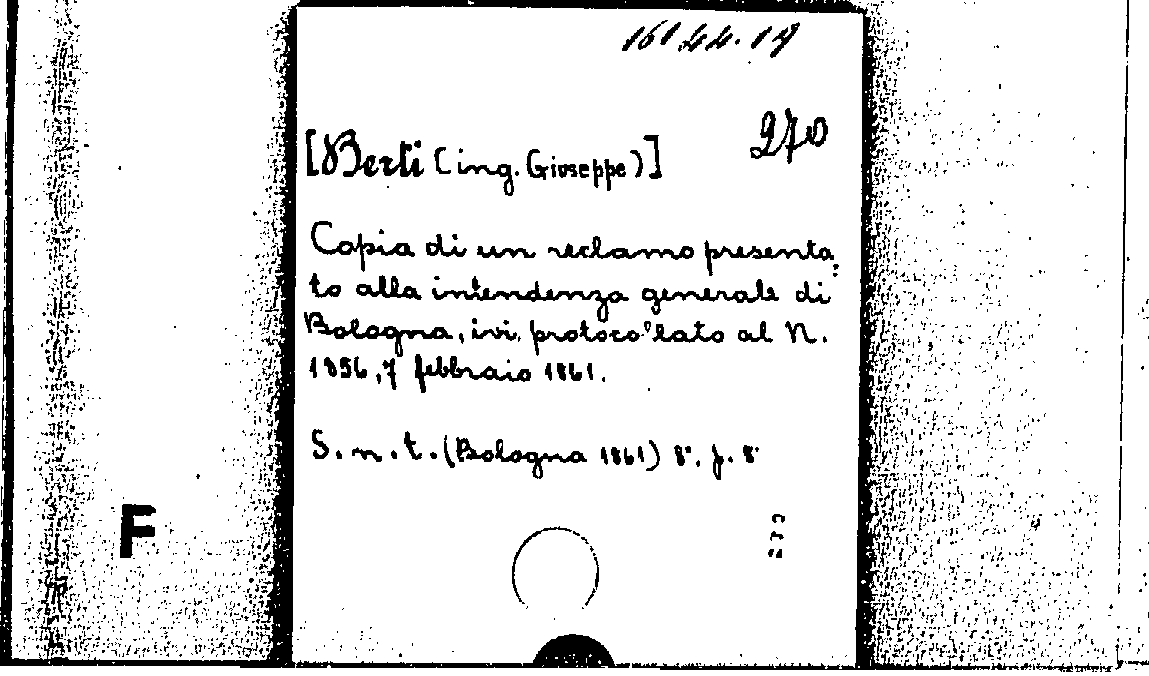 16144.19
270
[Berti (ing. Giuseppe)]
Copia di un reclamo presenta:
to alla intendenza generale di
Bologna, ivi, protocollato al N.
1856, 7 febbraio 1861.
S. n. t. (Bologna 1861) 8°. f. 8°
F